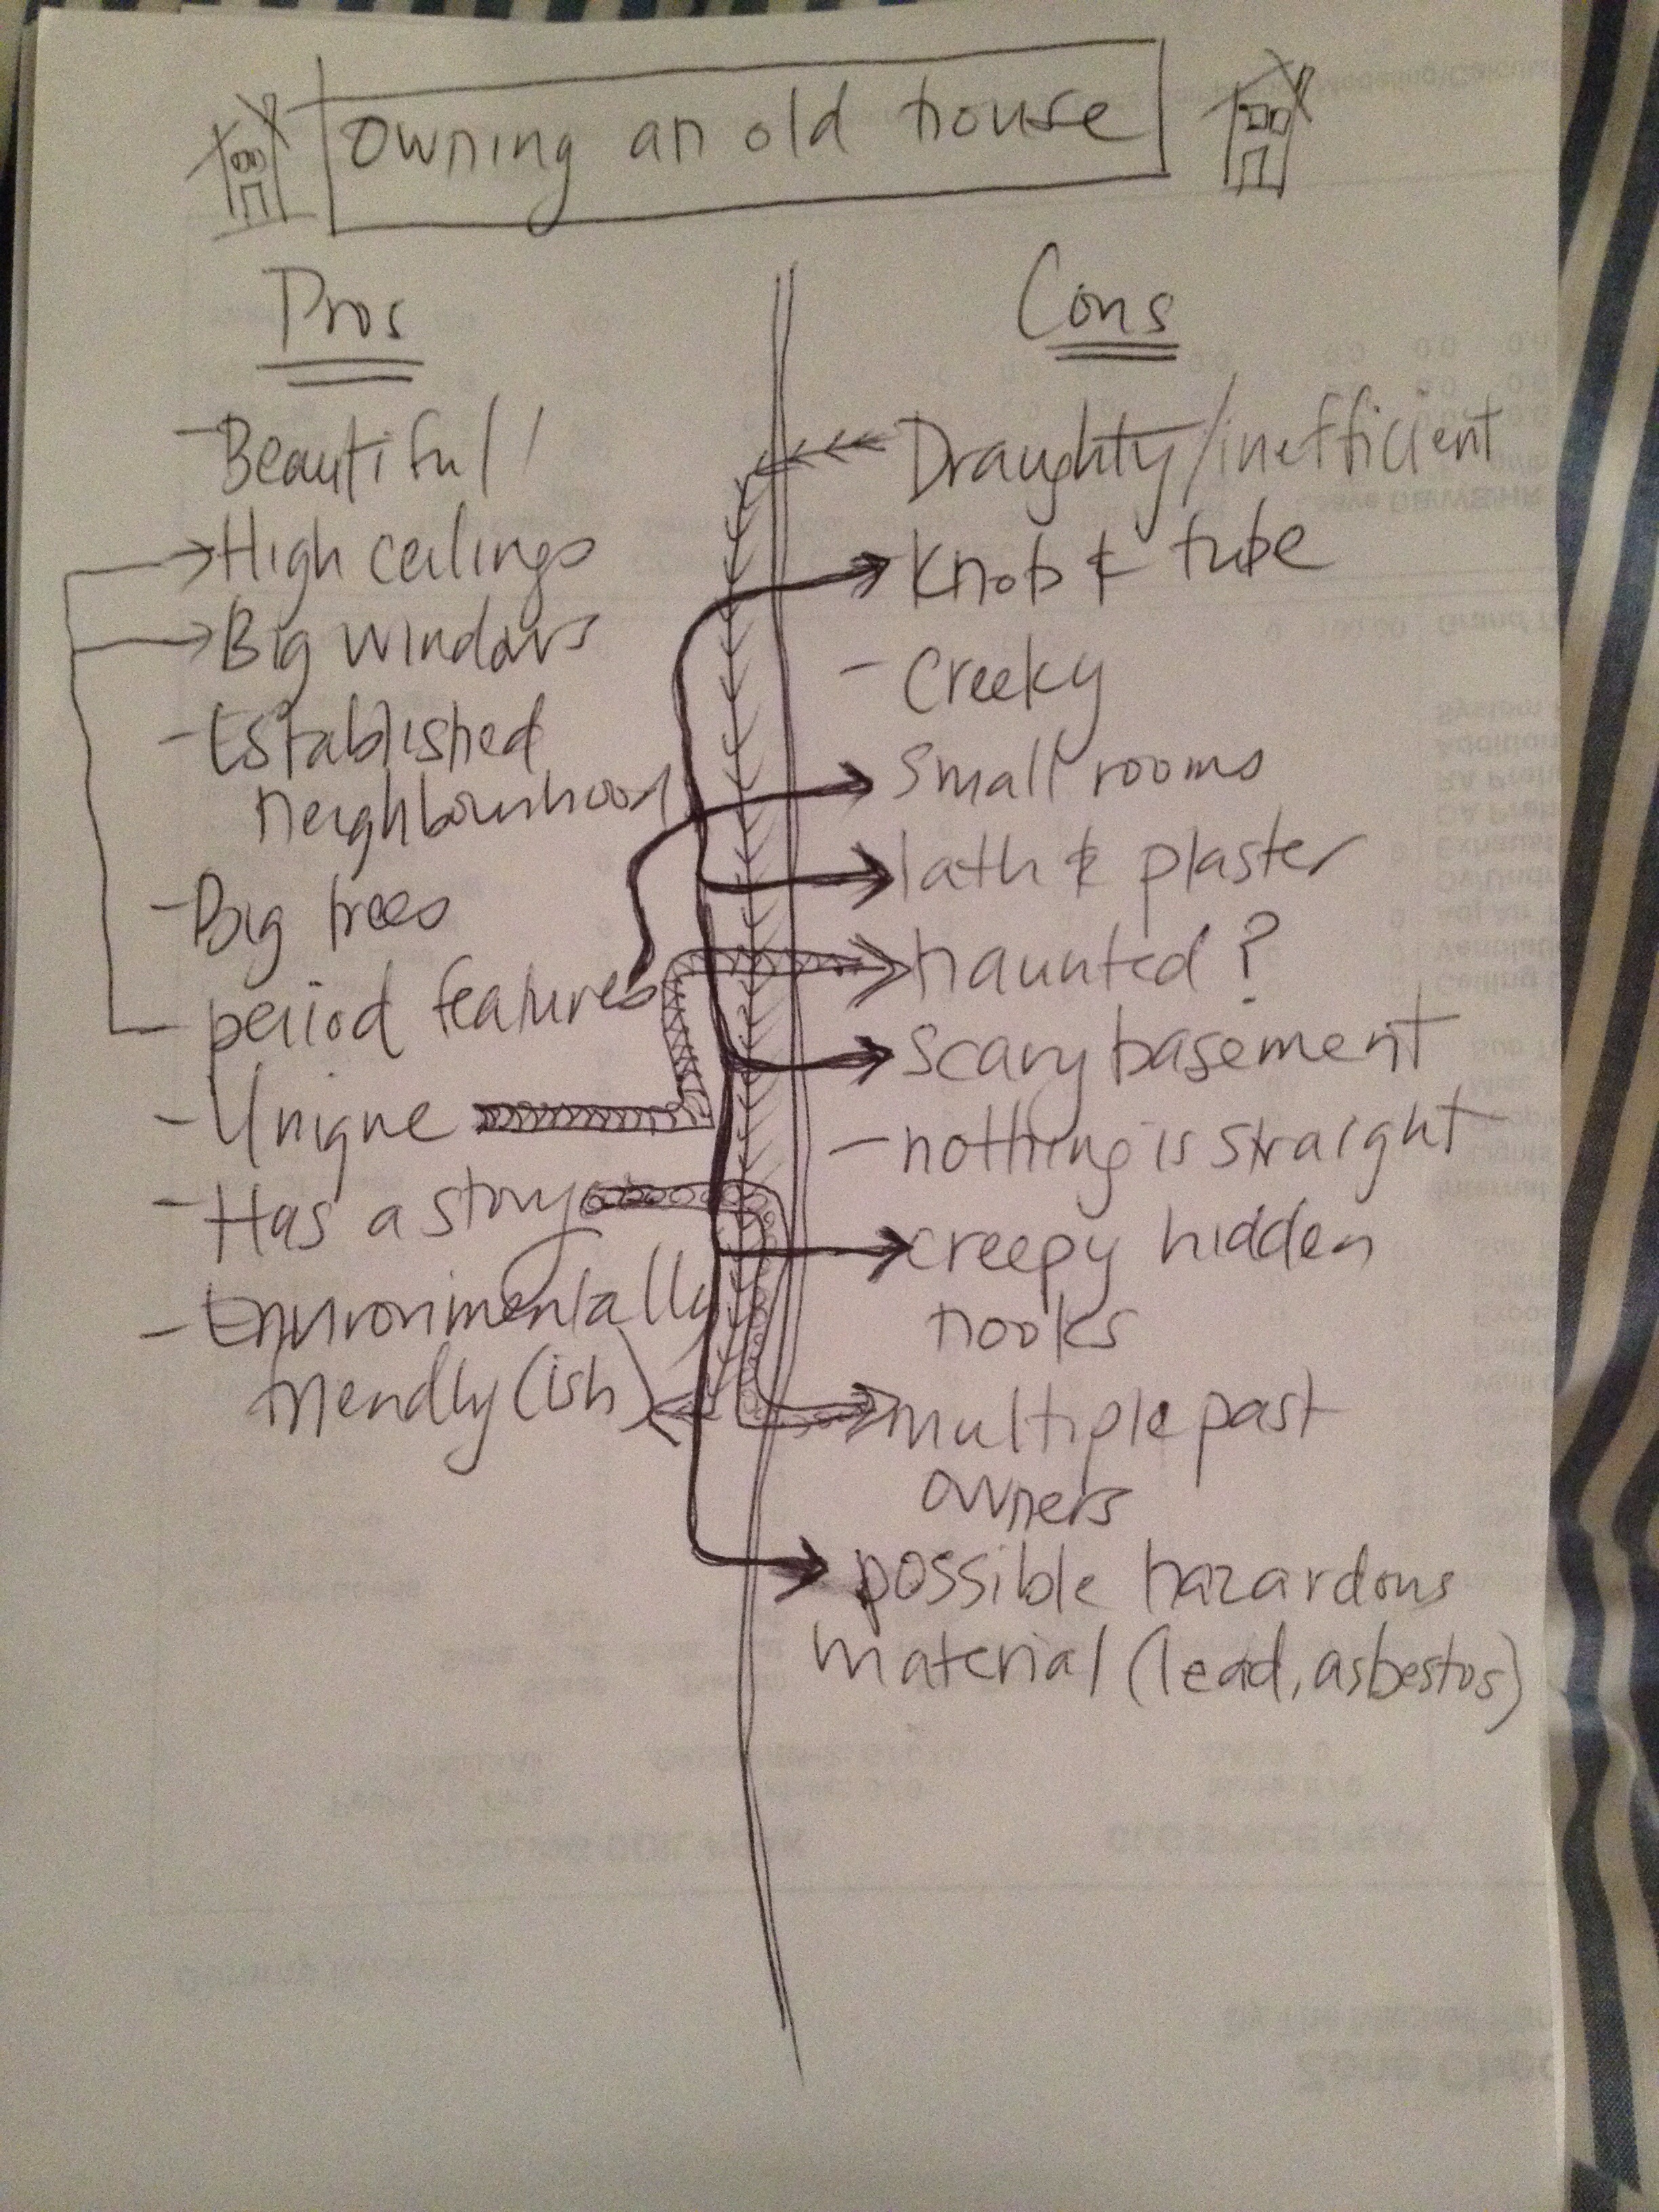 Owning an old house
Pros
- Beautiful!
High ceilings
Big windows
- Established
neighbourhood
- Big trees
period features
- Unique
- Has a story
- Environmentally
friendly (ish)
Cons
Draughty/inefficient
Knob & tube
- Creeky
Small rooms
lath & plaster
haunted?
Scary basement
- nothing is straight
creepy hidden
nooks
multiple past
owners
possible hazardous
material (lead, asbestos)